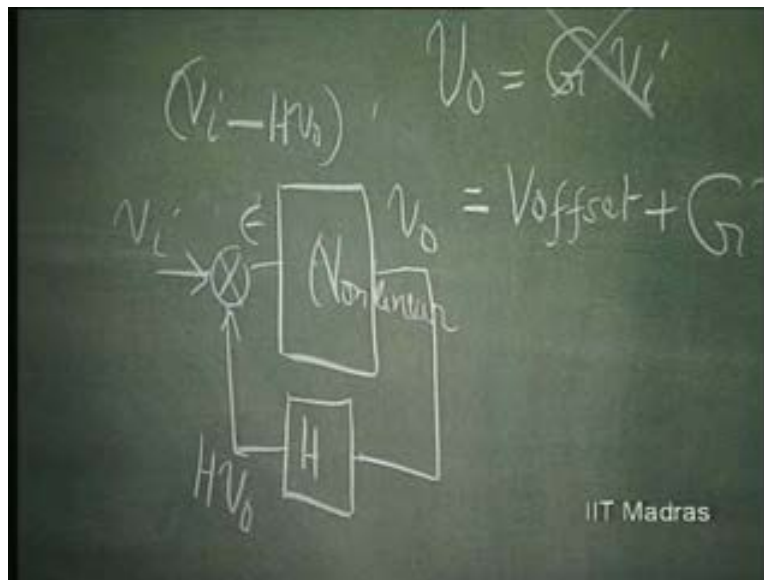 V₀ = G Vi
(Vi – HV₀)
= Voffset + G
Vi
ϵ
V₀
Nonlinear
H
HV₀
IIT Madras